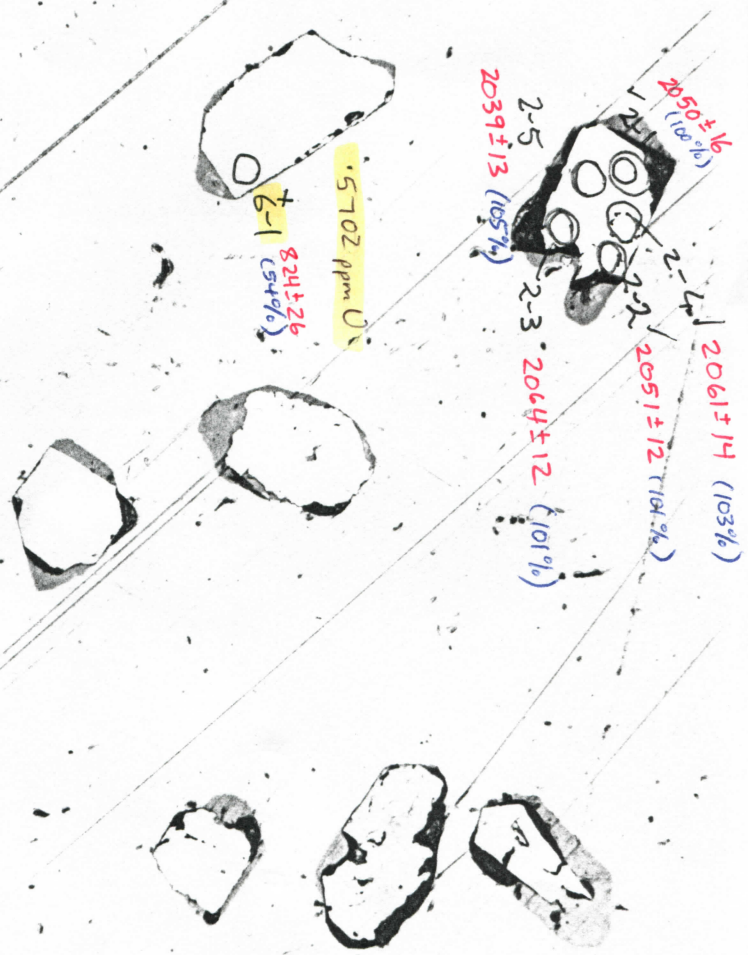 ✓ 2-1
2050 ± 16
(100%)
2-5
2039 ± 13 (105%)
2-4 ✓
2061 ± 14 (103%)
2-2 ✓
2051 ± 12 (101%)
2-3
2064 ± 12 (101%)
5702 ppm U
6-1
824 ± 26
(54%)